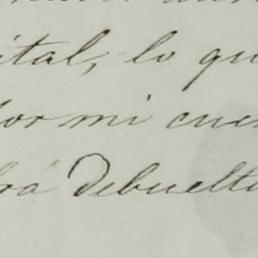 ital, lo qu
por mi cuen
rá debuelto